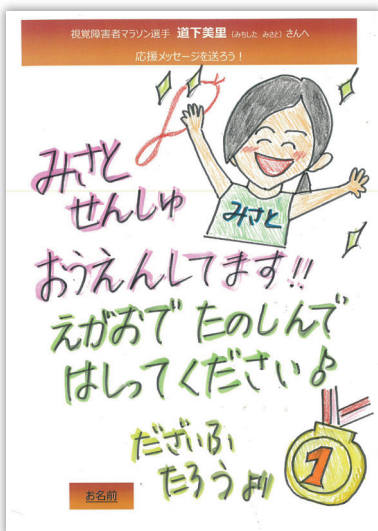 視覚障害者マラソン選手 道下美里(みちした みさと)さんへ
応援メッセージを送ろう!
みさと
せんしゅ
みさと
おうえんしてます!!
えがおで たのしんで
はしってください♪
だざいふ
たろうより
1
お名前